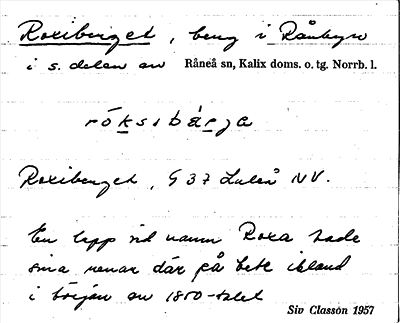 Roxiberget, berg i Rånbyn
i s. delen av Råneå sn, Kalix doms. o. tg. Norrb. l.
röksıbärja
Roxiberget, G 37 Luleå NV.
En lapp vid namn Roxa hade
sina renar där på bete ibland
i början av 1800-talet
Siv Classón 1957